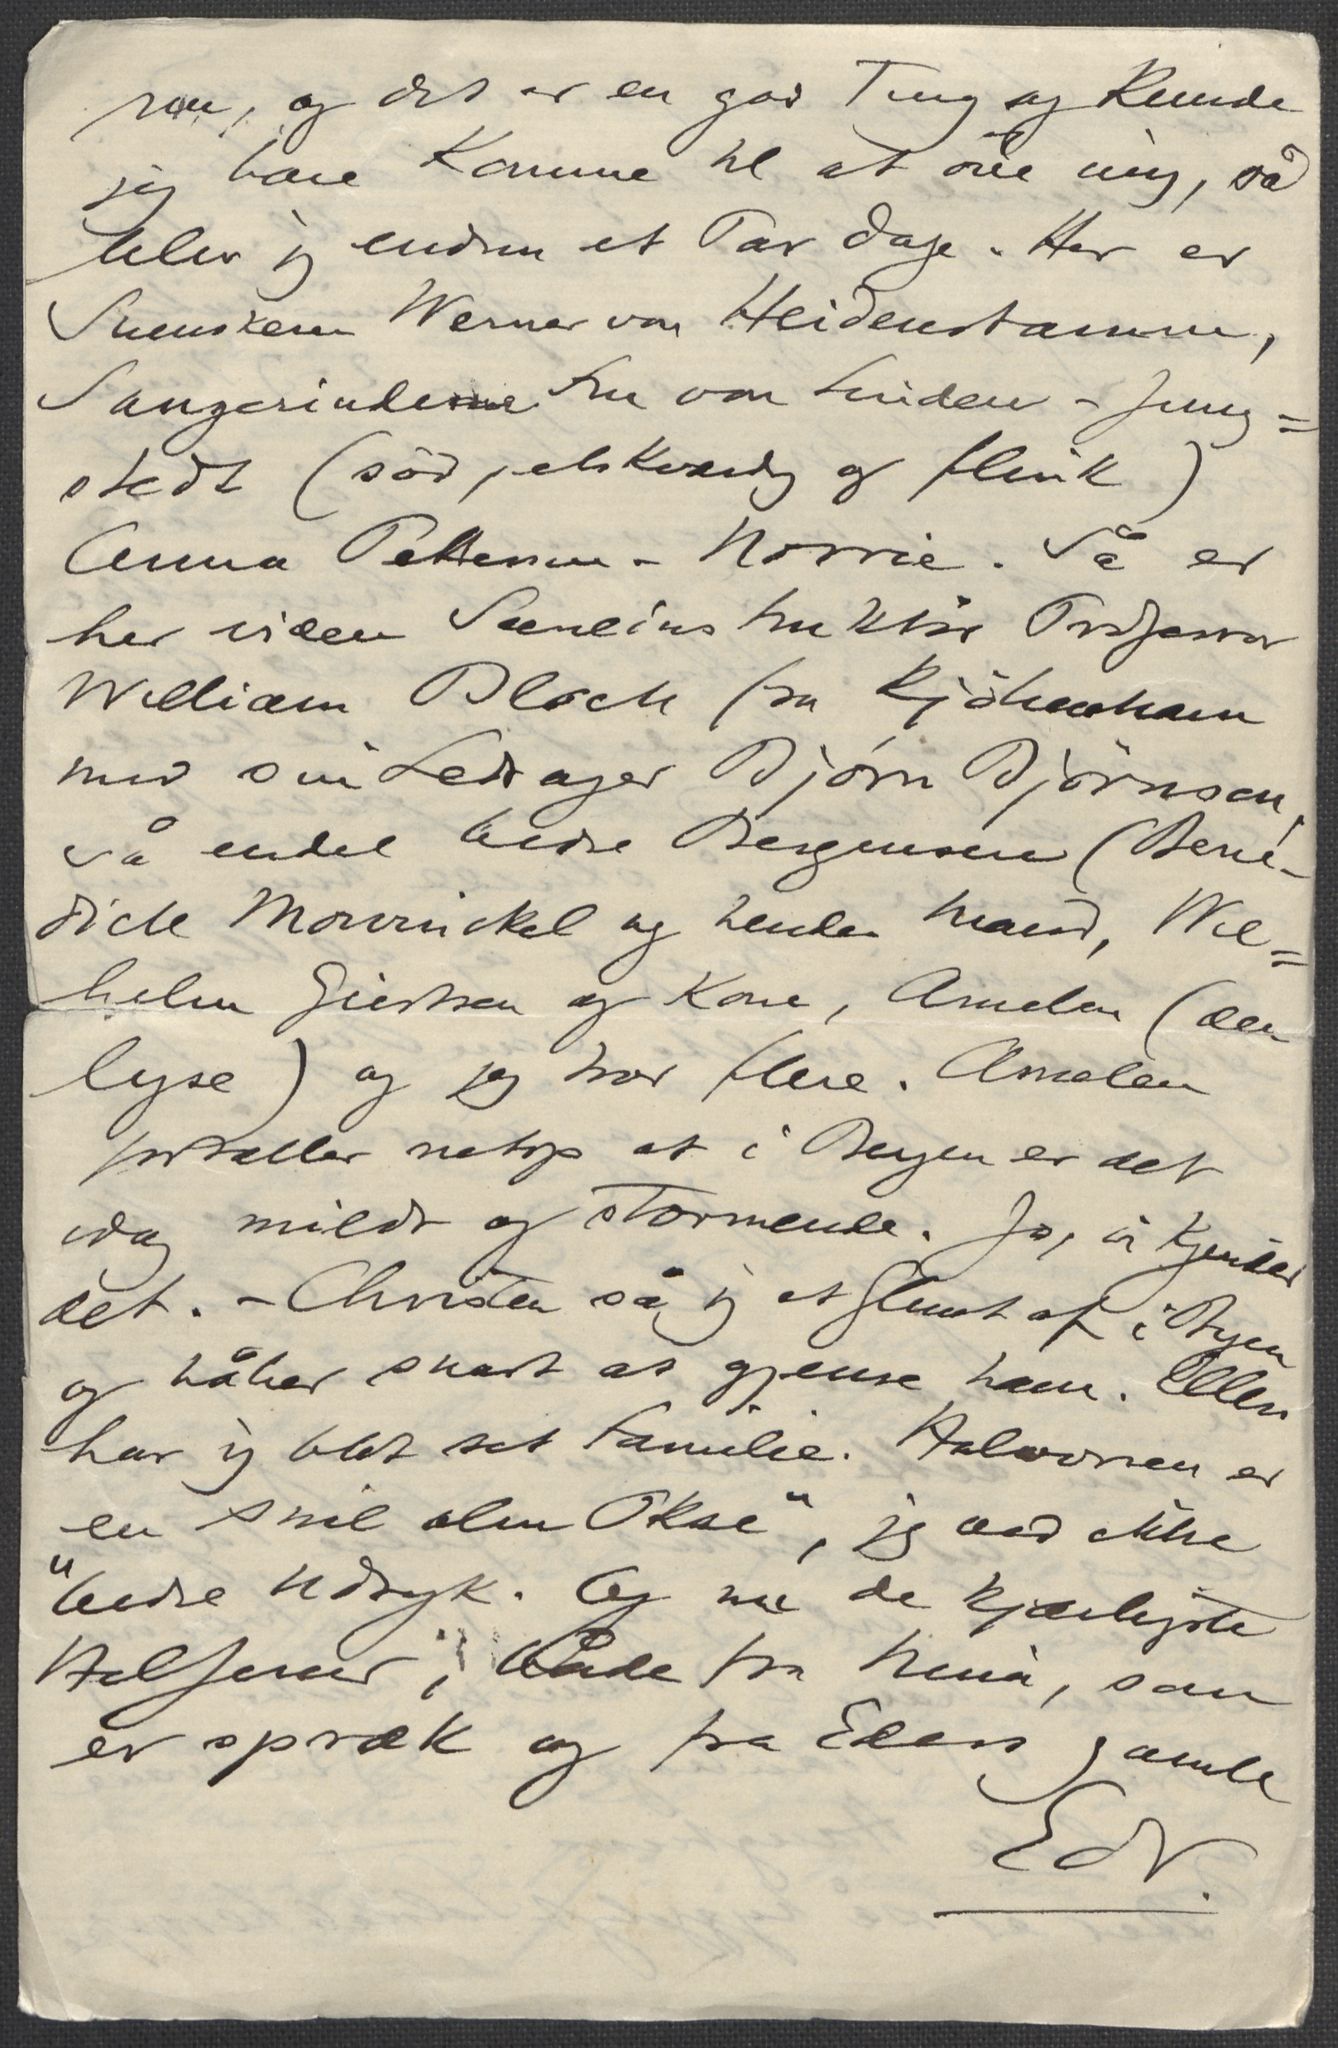 nu, og det er en god Ting og kunde
jeg bare komme til at øve mig, så
blev jeg endnu et Par Dage. Her er
Svensken Werner von Heidenstamm,
Sangerinderne Fru von Linden-Jung=
stedt (sød, elskværdig og flink)
Anna Pettersen-Norrie. Så er
her videre Sceneinstruktør Professor
William Bloch fra Kjöbenhavn
med sin Ledsager Bjørn Björnson,
så endel bedre Bergensere (Bene-
dicte Mowinckel og hendes Mand, Wil=
helm Giertsen og Kone, Amelen (den
lyse) og jeg tror flere. Amelen
fortæller netop at i Bergen er det
idag mildt og stormende. Jo, vi kjender
det. – Christen så jeg et Glimt af i Byen
og håber snart at gjense ham. Ellers
har jeg blot set Familie. Halvorsen er
en snil "olm Okse", jeg ved ikke
bedre Udtryk. Og nu de kjærligste
Hilsener, både fra Nina, som
er spræk og fra Eders gamle
Edv.